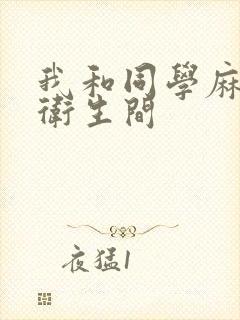 我和同學麻
衛生間
夜猛1